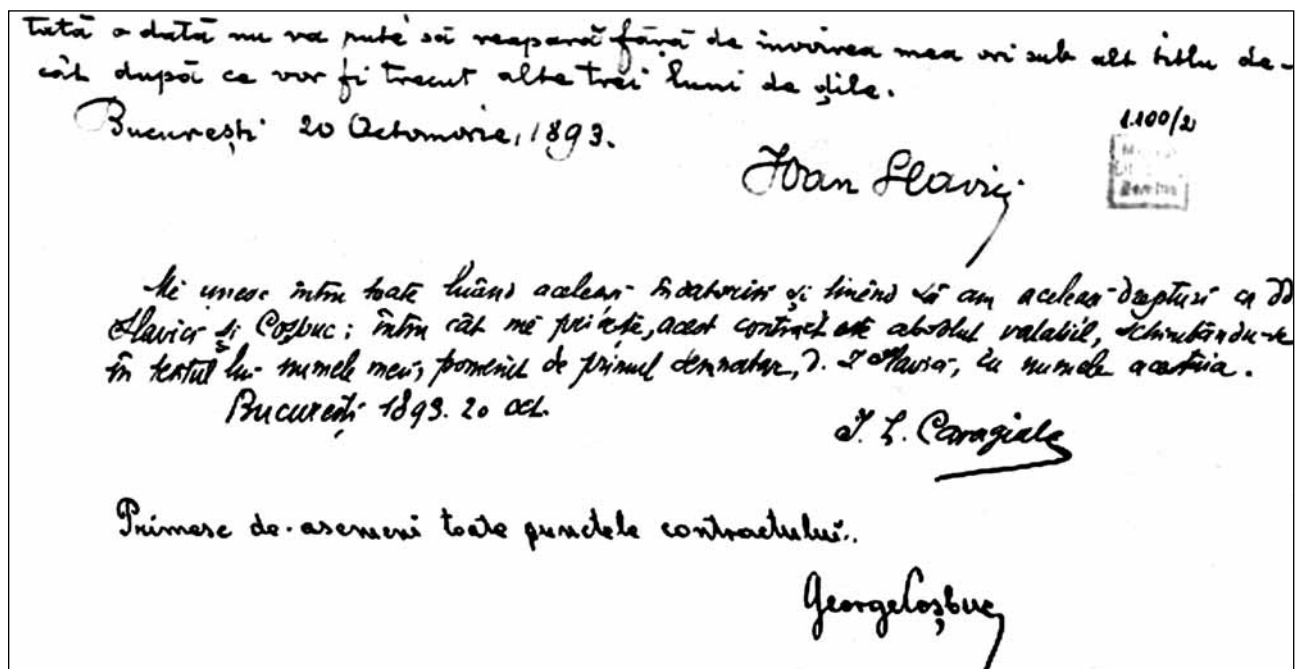 tată o dată nu va pute să reapară fără de învoirea mea ori sub alt titlu de-
cât după ce vor fi trecut alte trei luni de ḑile.
Bucureşti 20 Octomvrie, 1893.
1.100/2
Ioan Slavici
Mĕ unesc întru toate luând aceleaşi îndatoriri şi ţinênd să am aceleaşi drepturi ca DD
Slavici şi Coşbuc; întru cât mĕ priveşte, acest contract este absolut valabil, schimbându-se
în textul lui numele meu, pomenit de primul semnatar, D. I Slavici, cu numele acestuia.
Bucureşti 1893. 20 oct.
I. L. Caragiale
Primesc de-asemeni toate punctele contractului.
George Coşbuc